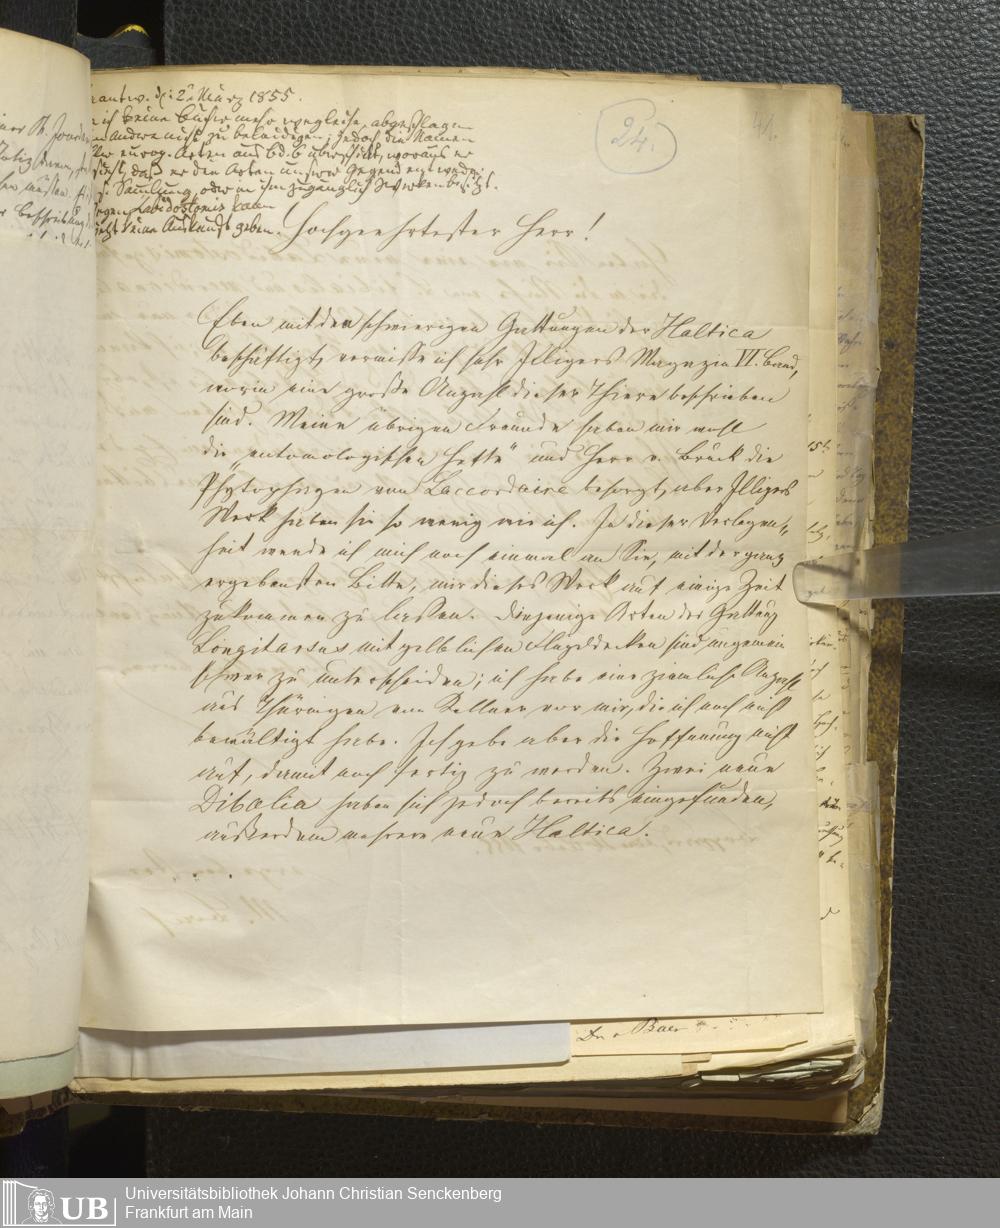 antw. d. 2 März 1855.
ich keine Bücher mehr wegleihe, abgeschlagen
Andere nicht zu beleidigen; jedoch die Namen
europ. Arten aus bd. 6 überschickt, woraus er
sieht, daß er den Arten unsrer Gegend entweder
Sammlung, oder in ihm zugänglich Werken besitzt.
wegen Labidostomis kann
jetzt keine Auskunft geben.
24.
Hochgeehrtester Herr!
Eben mit den schwierigen Gattungen der Haltica
beschäftigt, vermisse ich sehr Illigers Magazin VI. Band,
worin eine große Anzahl dieser Thiere beschrieben
sind. Meine übrigen Freunde haben mir wohl
die „entomologischen Hefte“ und Herr v. Bruck die
Phytophagen von Laccordaire besorgt, aber Illigers
Werk haben sie so wenig wie ich. In dieser Verlegen„
heit wende ich mich noch einmal an Sie, mit der ganz
ergebensten Bitte, mir dieses Werk auf einige Zeit
zukommen zu lassen. Diejenige Arten der Gattung
Longitarsus mit gelblichen Flügeldecken sind ungemein
schwer zu unterscheiden; ich habe eine ziemliche Anzahl
aus Thüringen von Kellner vor mir, die ich noch nicht
bewältigt habe. Ich gebe aber die Hoffnung nicht
auf, damit noch fertig zu werden. Zwei neue
Dibolia haben sich jedoch bereits eingefunden,
außerdem mehrere neue Haltica.
Dr. v Baer
UB
Universitätsbibliothek Johann Christian Senckenberg
Frankfurt am Main